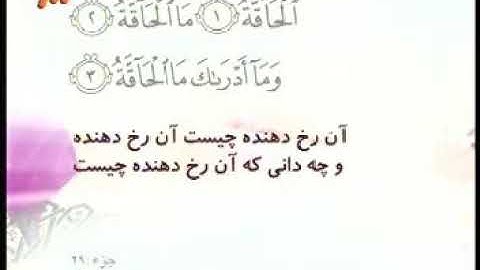 ٱلۡحَآقَّةُ ١ مَا ٱلۡحَآقَّةُ ٢
وَمَآ أَدۡرَىٰكَ مَا ٱلۡحَآقَّةُ ٣
آن رخ دهنده چیست آن رخ دهنده
و چه دانی که آن رخ دهنده چیست
جزء :۲۹